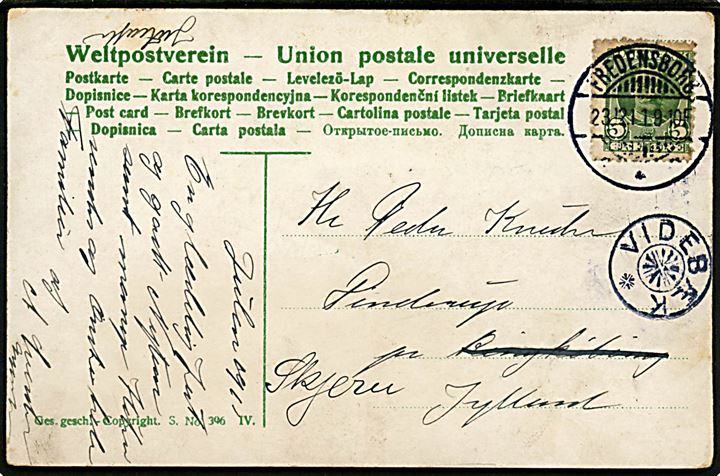 Weltpostverein — Union postale universelle
Postkarte — Carte postale — Levelező-Lap — Correspondenzkarte —
Dopisnice — Karta korespondencyjna — Korespondenční listek — Briefkaart
Post card — Brefkort — Brevkort — Cartolina postale — Tarjeta postal
Dopisnica — Carta postala — Открытое письмо. Дописна карта.
FREDENSBORG
23.12.11.9-10F
5 5
VIDEBÆK
Hr Peder
pr Ringkøbing
Skjern Jylland
Julen 1911
En glædelig Jul
og godt Nytaar
Familien
Ges. gesch. - Copyright. S. No. 396 IV.